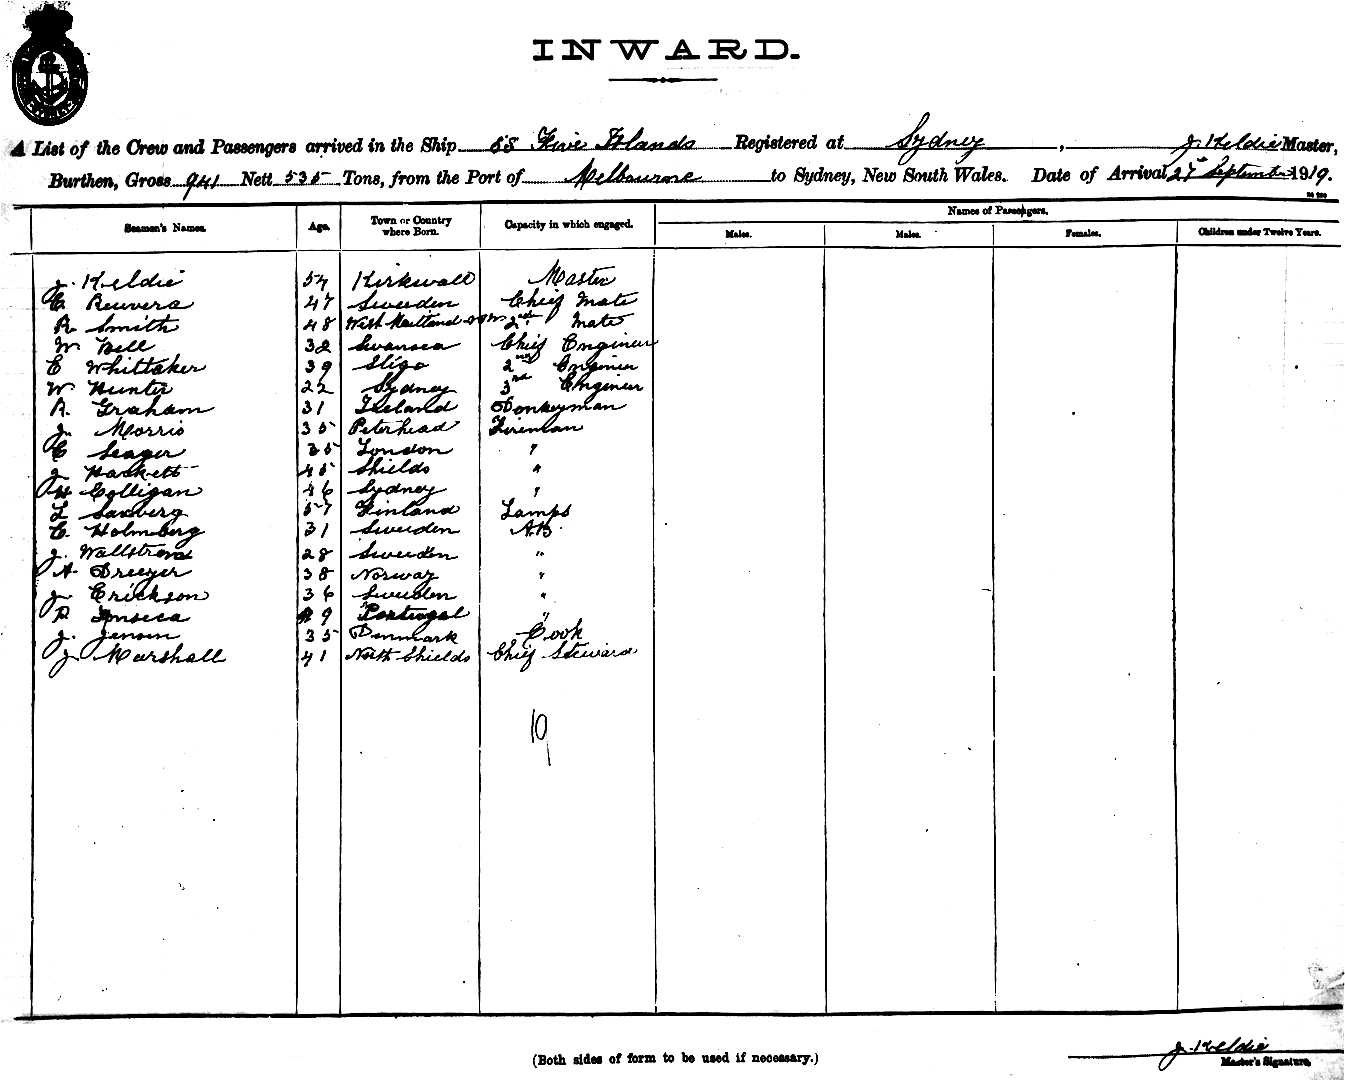 INWARD.
A List of the Crew and Passengers arrived in the Ship SS Five Islands Registered at Sydney, J. Keldie Master,
Burthen, Gross 941 Nett 535 Tons, from the Port of Melbourne to Sydney, New South Wales. Date of Arrival September 1919.
Seamen's Names. Age. Town or Country where Born. Capacity in which engaged. Names of Passengers.
Males. Males. Females. Children under Twelve Years.
J. Keldie 54 Kirkwall Master
C Reuvera 47 Sweden Chief Mate
R Smith 48 West Maitland NSW 2nd Mate
W Bell 32 Swansea Chief Engineer
C Whittaker 39 Sligo 2nd Engineer
W Hunter 22 Sydney 3rd Engineer
R. Graham 31 Ireland Donkeyman
J. Morris 35 Peterhead Fireman
C Seager 35 London "
J Hackett 45 Shields "
H Colligan 46 Sydney "
L Saxberg 57 Finland Lamps
C. Holmberg 31 Sweden A.B.
J. Wallstrom 28 Sweden "
A Dreeyer 38 Norway "
J Erickson 36 Sweden "
P Fonseca 29 Portugal "
J. Jensen 35 Denmark Cook
J. Marshall 41 North Shields Chief Steward
19
(Both sides of form to be used if necessary.)
J. Keldie
Master's Signature.